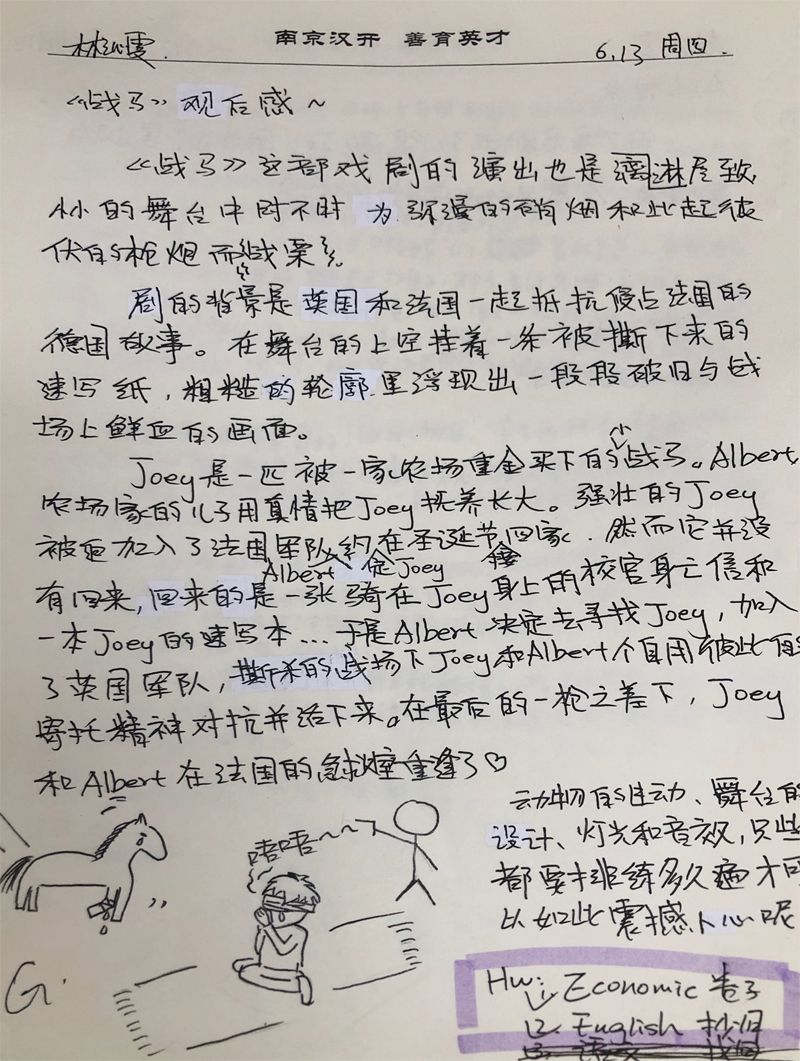 南京汉开 善育英才
6.13 周四.
《战马》观后感～
《战马》这部戏剧的演出也是漓淋尽致,
小的舞台中时不时为弥漫的硝烟和此起彼
伏的枪炮而战栗
剧的背景是英国和法国一起抵抗侵占法国的
德国故事。在舞台的上空挂着一条被撕下来的
速写纸，粗糙的轮廓里浮现出一段段破旧与战
场上鲜血的画面。
Joey是一匹被一家农场重金买下的小战马。Albert,
农场家的儿子用真情把Joey抚养长大。强壮的Joey
被迫加入了法国军队,约在圣诞节回家，然而它并没
Albert Joey
有回来,回来的是一张骑在Joey身上的校官身亡信和
一本Joey的速写本...于是Albert决定去寻找Joey，加入
了英国军队，撕杀的战场下Joey和Albert个自用彼此的
寄托精神对抗并活下来。在最后的一枪之差下，Joey
和Albert在法国的急救重逢了♡
动物的生动、舞台的
设计、灯光和音效,只些
都要排练多久遍才可
以如此震撼人心呢
唔唔～～
G.
Hw: 1. Economic 卷子
2. English 抄归
3. 语文